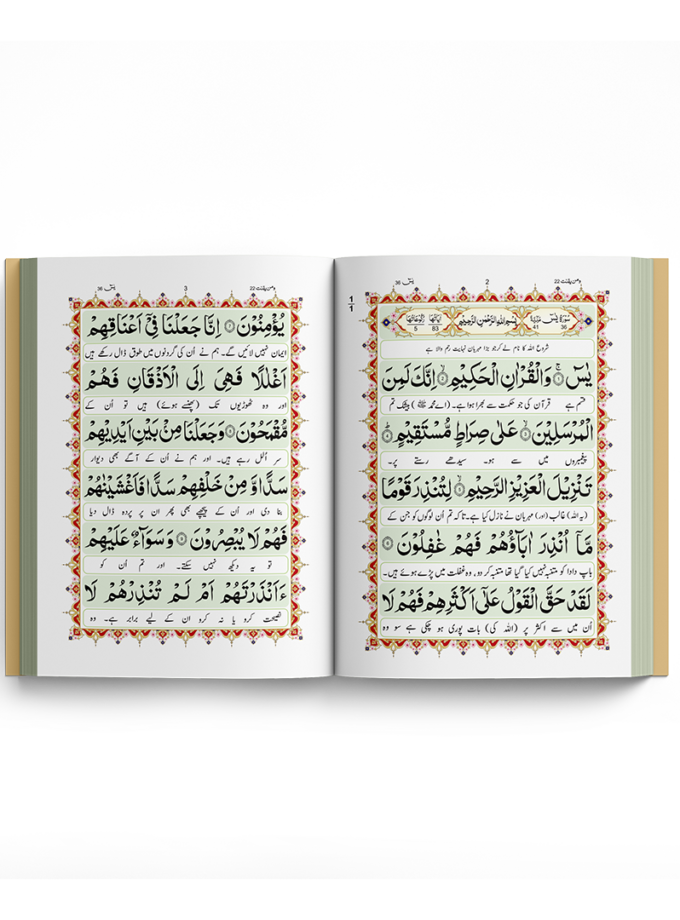 وَمَن يَّقْنُت 22
2
يٰسٓ 36
سُوْرَةُ يٰسٓ مَكِّيَّةٌ
36
41
بِسْمِ اللهِ الرَّحْمٰنِ الرَّحِيْمِ
اٰيَاتُهَا
83
رُكُوْعَاتُهَا
5
شروع اللہ کا نام لے کر جو بڑا مہربان نہایت رحم والا ہے
يٰسٓ ۞ وَالْقُرْاٰنِ الْحَكِيْمِ ۞ اِنَّكَ لَمِنَ
قسم ہے قرآن کی جو حکمت سے بھرا ہوا ہے۔ (اے محمد ﷺ) بیشک تم
الْمُرْسَلِيْنَ ۞ عَلٰى صِرَاطٍ مُّسْتَقِيْمٍ ۞
پیغمبروں میں سے ہو۔ سیدھے رستے پر۔
تَنْزِيْلَ الْعَزِيْزِ الرَّحِيْمِ ۞ لِتُنْذِرَ قَوْمًا
(یہ اللہ) غالب (اور) مہربان نے نازل کیا ہے۔ تاکہ تم اُن لوگوں کو جن کے
مَّاۤ اُنْذِرَ اٰبَآؤُهُمْ فَهُمْ غٰفِلُوْنَ ۞
باپ دادا کو متنبہ نہیں کیا گیا تھا متنبہ کر دو، وہ غفلت میں پڑے ہوئے ہیں۔
لَقَدْ حَقَّ الْقَوْلُ عَلٰٓى اَكْثَرِهِمْ فَهُمْ لَا
اُن میں سے اکثر پر (اللہ کی) بات پوری ہو چکی ہے سو وہ
وَمَن يَّقْنُت 22
3
يٰسٓ 36
يُؤْمِنُوْنَ ۞ اِنَّا جَعَلْنَا فِيْۤ اَعْنَاقِهِمْ
ایمان نہیں لائیں گے۔ ہم نے اُن کی گردنوں میں طوق ڈال رکھے ہیں
اَغْلٰلًا فَهِيَ اِلَى الْاَذْقَانِ فَهُمْ
اور وہ ٹھوڑیوں تک (پھنسے ہوئے) ہیں تو اُن کے
مُّقْمَحُوْنَ ۞ وَجَعَلْنَا مِنْۢ بَيْنِ اَيْدِيْهِمْ
سر اُلل رہے ہیں۔ اور ہم نے اُن کے آگے بھی دیوار
سَدًّا وَّمِنْ خَلْفِهِمْ سَدًّا فَاَغْشَيْنٰهُمْ
بنا دی اور اُن کے پیچھے بھی پھر اُن پر پردہ ڈال دیا
فَهُمْ لَا يُبْصِرُوْنَ ۞ وَسَوَآءٌ عَلَيْهِمْ
تو یہ دیکھ نہیں سکتے۔ اور تم اُن کو
ءَاَنْذَرْتَهُمْ اَمْ لَمْ تُنْذِرْهُمْ لَا
نصیحت کرو یا نہ کرو ان کے لیے برابر ہے۔ وہ